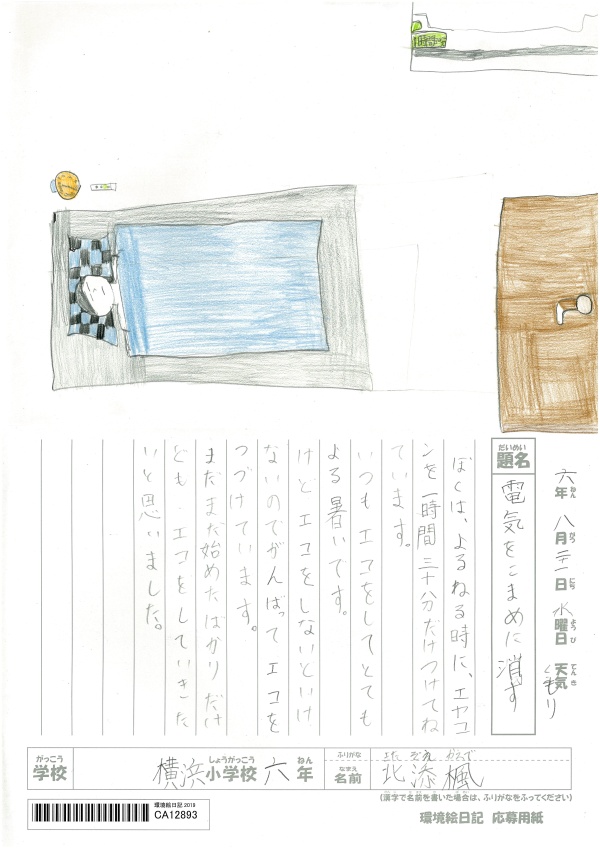 六年 八月 二十一日 水曜日 天気 くもり
ねん がつ にち ようび てんき
だいめい
題名
電気をこまめに消す
ぼくは、よるねる時に、エヤコ
ンを一時間三十分だけつけてね
ています。
いつもエコをしてとても
よる暑いです。
けどエコをしないといけ
ないのでがんばってエコを
つづけています。
まだまだ始めたばかりだけ
ども、エコをしていきた
いと思いました。
がっこう しょうがっこう ねん
学校 横浜小学校 六年
ふりがな きた ぞえ かえで
なまえ
名前 北添楓
(漢字で名前を書いた場合は、ふりがなをふってください)
環境絵日記 2019
CA12893
環境絵日記 応募用紙